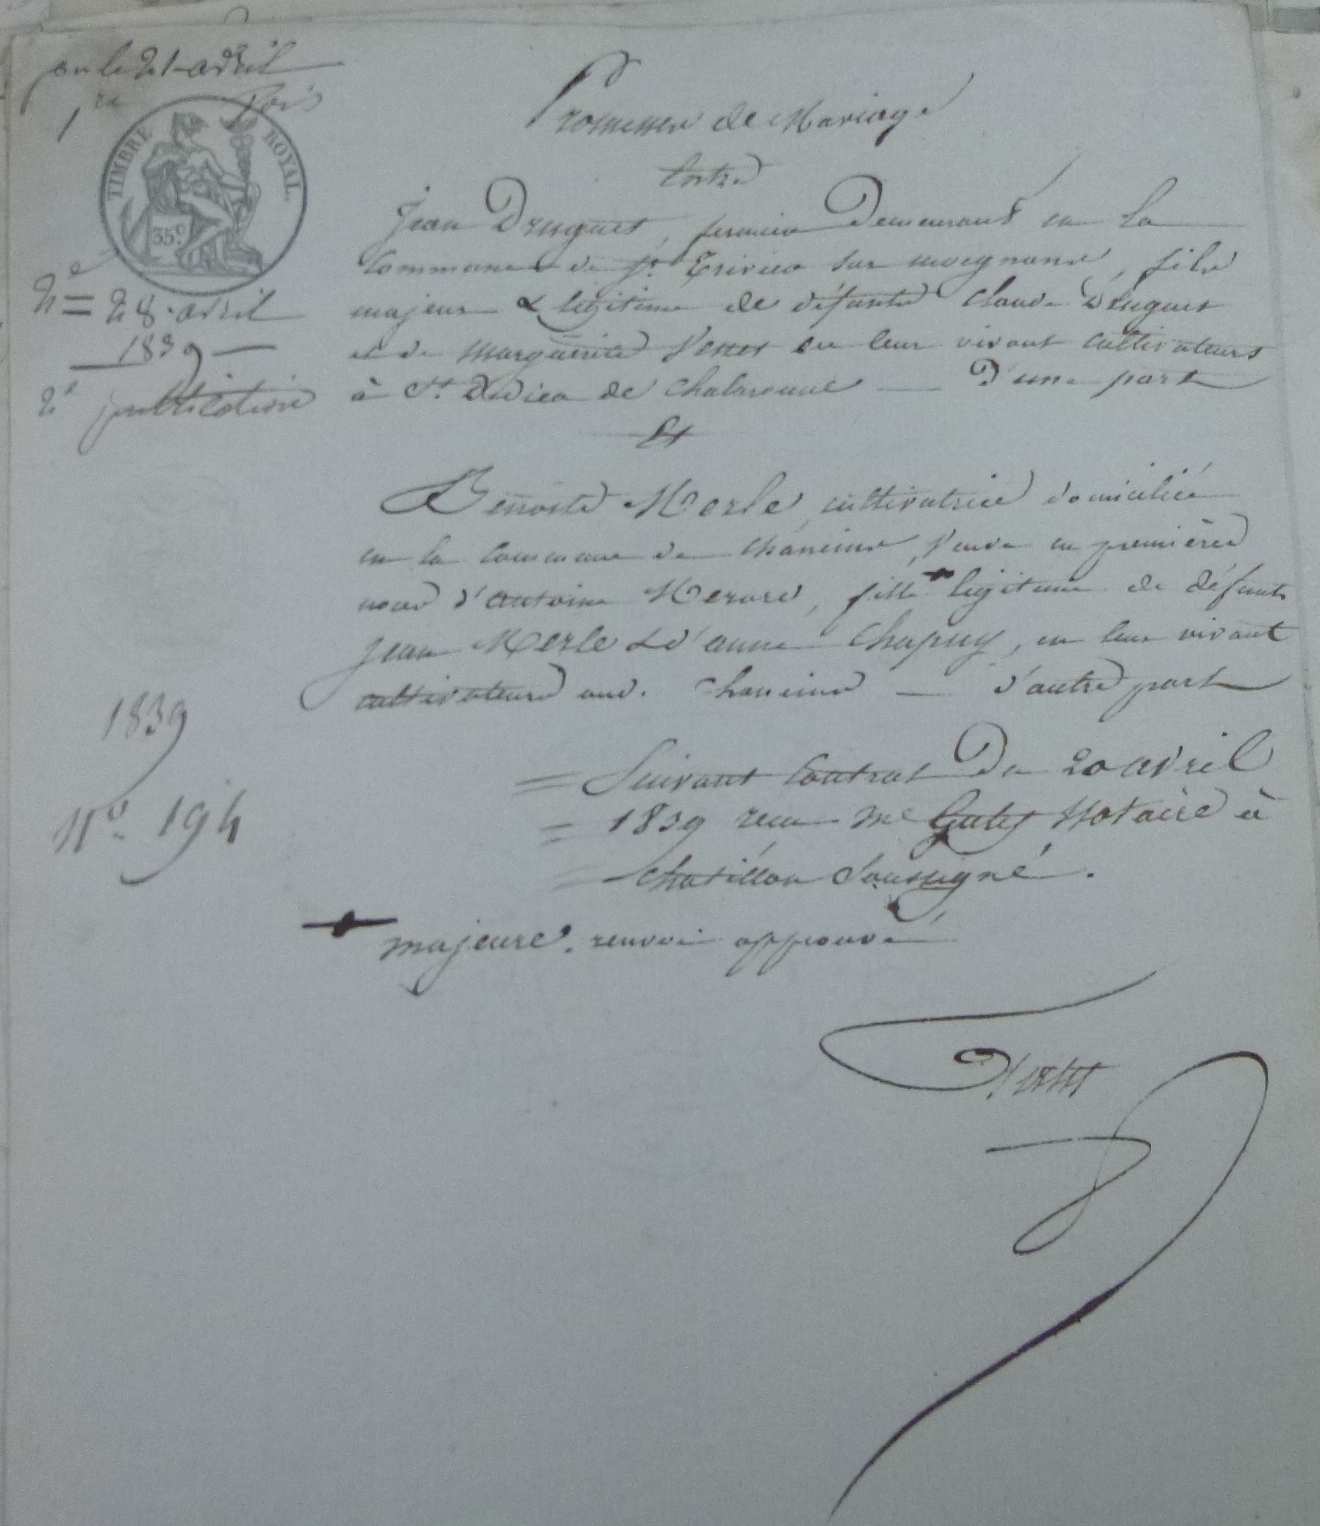 le 21 avril
1re fois
TIMBRE ROYAL
35c
2e = 28 avril
1839
2e publication
1839
N° 194
Promesse de Mariage
Entre
Jean Druguet, fermier Demeurant en la
Commune de St Trivier sur moignans, fils
majeur & légitime de défunts Claude Druguet
et de Marguerite en leur vivant cultivateurs
à St Didier de Chalaronne — D'une part
Et
Benoite Merle, cultivatrice domiciliée
en la Commune de Chaneins, Veuve en premières
noces d'antoine, fille légitime de défunts
Jean Merle & d'anne Chapuy, en leur vivant
cultivateurs aud. Chaneins — d'autre part
= Suivant Contrat Du 20 avril
= 1839 reçu Me Notaire à
= Chatillon Soussigné.
majeure. renvoi approuvé